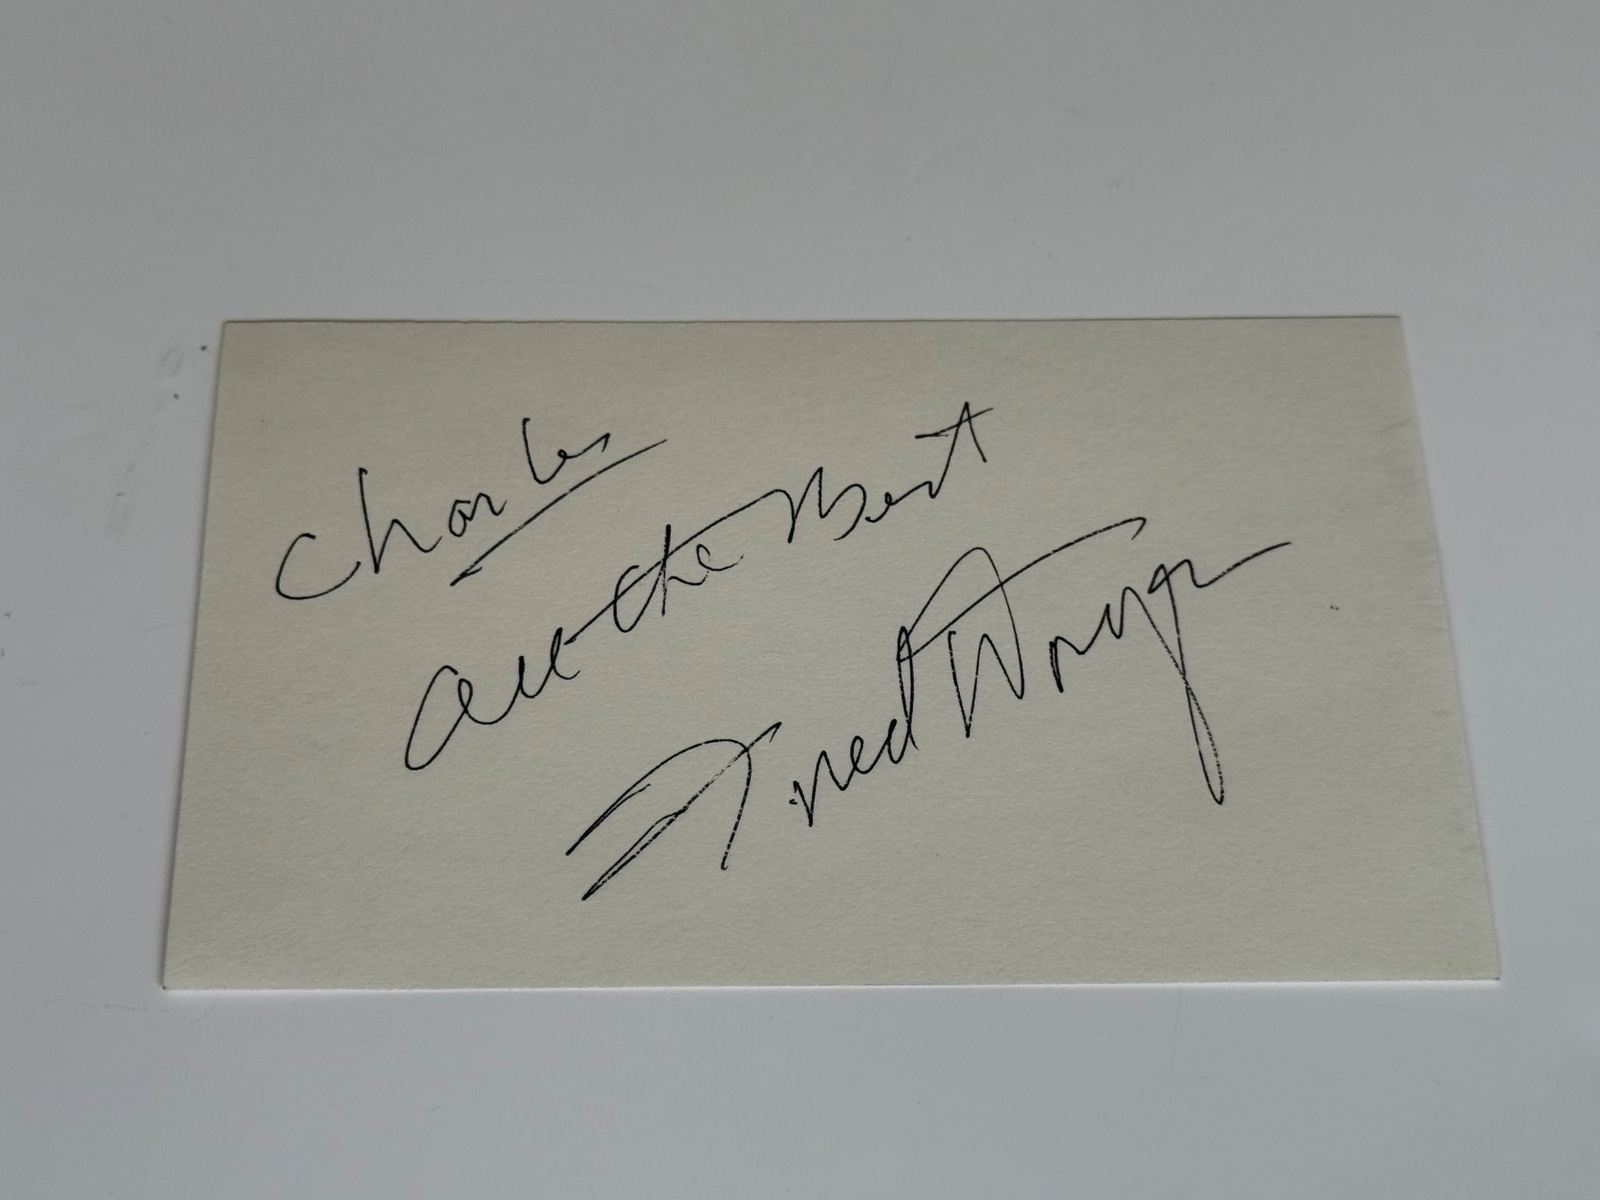 Charles
All the Best
Fred